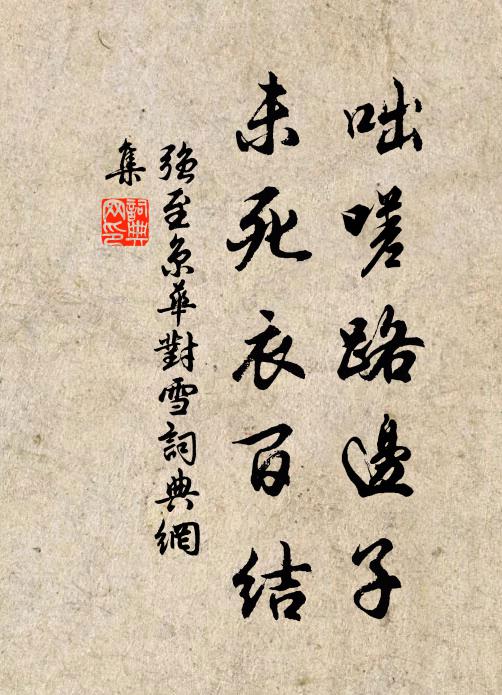 咄嗟路邊子
未死衣百結
強至京華對雪詞典網
集
詞典
網印